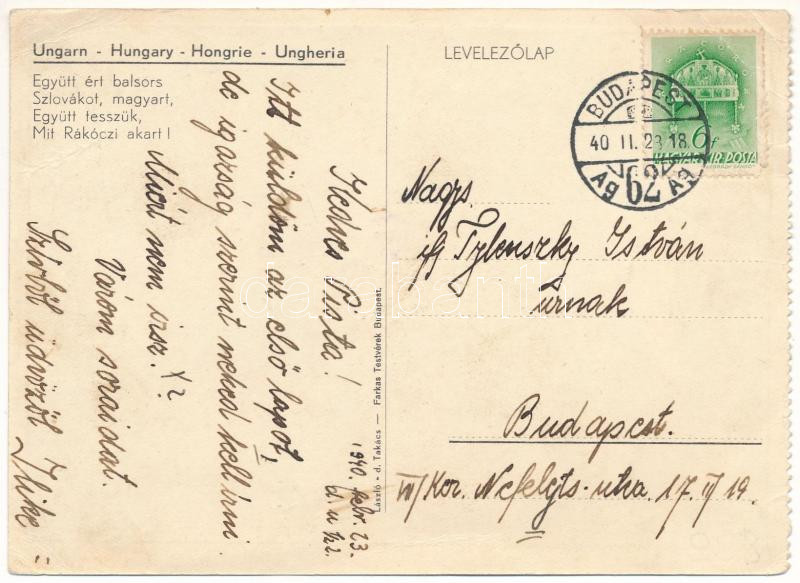 Ungarn - Hungary - Hongrie - Ungheria
Együtt ért balsors
Szlovákot, magyart,
Együtt tesszük,
Mit Rákóczi akart!
LEVELEZŐLAP
BUDAPEST
40 II. 23 18
62
Ag Ag
6f
MAGYAR KIR. POSTA
Kedves Pista!
1940. febr. 23.
d. u ½2
Itt küldöm az első lapot,
de igazság szerint neked kell írni.
Miért nem írsz. x?
Várom soraidat.
Szívből üdvözöl
Ilike
László - d. Takács — Farkas Testvérek Budapest.
Nagys.
ifj Tylenszky István
úrnak
Budapest.
VII/Ker. Nefelejts-utca 17. II/19.
darabanth